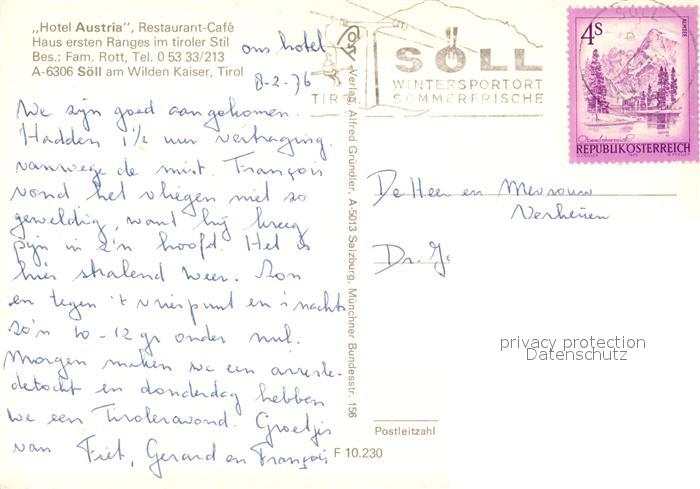 „Hotel Austria", Restaurant-Café
Haus ersten Ranges im tiroler Stil
Bes.: Fam. Rott, Tel. 0 53 33/213
A-6306 Söll am Wilden Kaiser, Tirol
ons hotel
8-2-76
We zijn goed aangekomen.
Hadden 1½ uur vertraging
vanwege de mist. François
vond het vliegen niet zo
geweldig, want hij kreeg
pijn in z'n hoofd. Het is
hier stralend weer. Zon
en tegen 't vriespunt en 's nachts
zo'n 10-12 gr onder nul.
Morgen maken we een arresle-
detocht en donderdag hebben
we een Tiroleravond. Groetjes
van Fiet, Gerard en François
Verlag Alfred Gründler, A-5013 Salzburg, Münchner Bundesstr. 156
TIROL
SÖLL
WINTERSPORTORT
SOMMERFRISCHE
4S
ALMSEE
REPUBLIK ÖSTERREICH
De Heer en Mevrouw
Verheijen
Dr.
privacy protection
Datenschutz
Postleitzahl
F 10.230